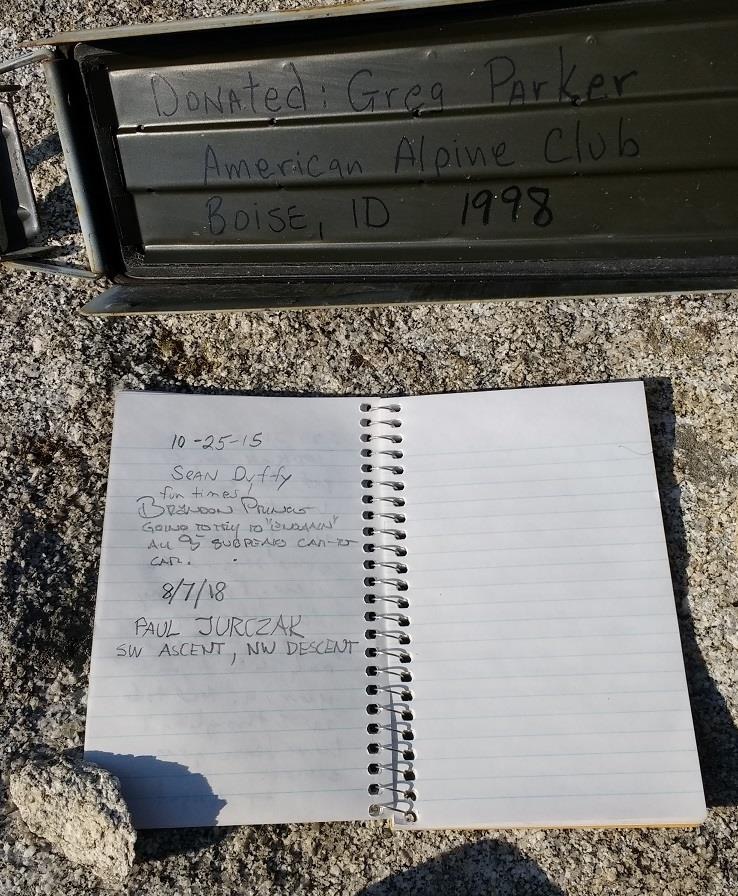 Donated: Greg Parker
American Alpine Club
Boise, ID 1998
10-25-15
Sean Duffy
fun times!
BRANDON
GOING TO TRY TO
ALL SUBPEAKS CAR-TO-
CAR.
8/7/18
PAUL JURCZAK
SW ASCENT, NW DESCENT